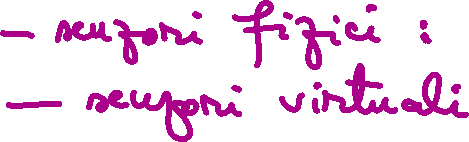 - senzori fizici :
- senzori virtuali